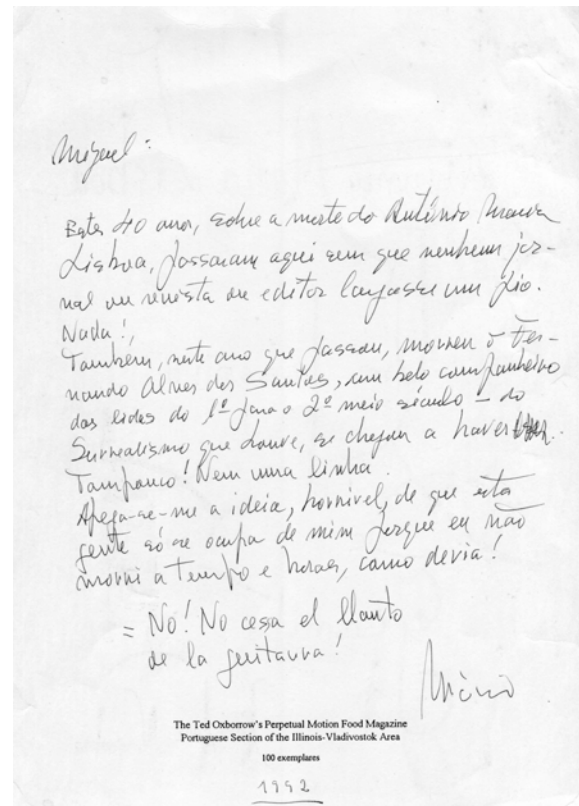 Miguel:
Estes 40 anos, sobre a morte do António Maria
Lisboa, passaram aqui sem que nenhum jor-
nal ou revista ou editor largasse um pio.
Nada!,
Também, neste ano que passou, morreu o Fer-
nando Alves dos Santos, um belo companheiro
das lides do 1º para o 2º meio século – do
Surrealismo que houve, se chegou a haver.
Tampouco! Nem uma linha.
Apega-se-me a ideia, horrível, de que esta
gente só se ocupa de mim porque eu não
morri a tempo e horas, como devia!
= No! No cesa el llanto
de la guitarra!
Mário
The Ted Oxborrow's Perpetual Motion Food Magazine
Portuguese Section of the Illinois-Vladivostok Area
100 exemplares
1992